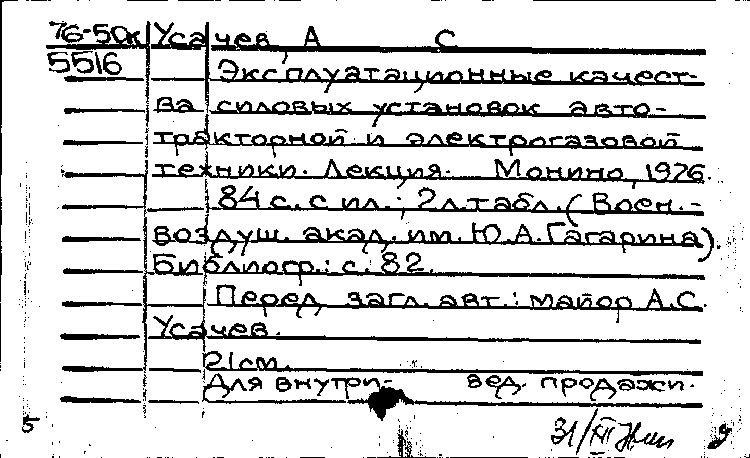 76-50к Усачев, А С
5516 Эксплуатационные качест-
ва силовых установок авто-
тракторной и электрогазовой
техники. Лекция. Монино, 1976.
84 с. с ил.; 2 л. табл. (Воен.-
воздуш. акад. им. Ю.А. Гагарина).
Библиогр.: с. 82.
Перед загл. авт.: майор А.С.
Усачев.
21 см.
Для внутри- вед. продажи.
5 31/XII